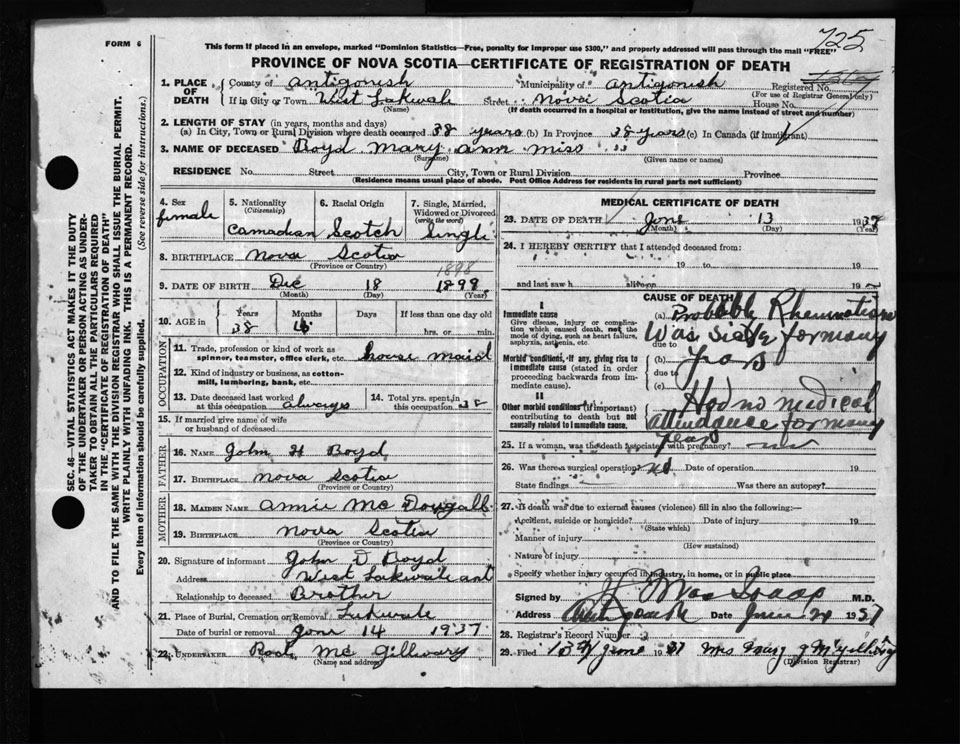 FORM 6
725
This form if placed in an envelope, marked "Dominion Statistics—Free, penalty for improper use $300," and properly addressed will pass through the mail "FREE"
PROVINCE OF NOVA SCOTIA—CERTIFICATE OF REGISTRATION OF DEATH
1. PLACE OF DEATH
County of Antigonish Municipality of Antigonish Registered No.
(For use of Registrar General only)
If in City or Town West Lakevale Street Nova Scotia House No.
(Name) (If death occurred in a hospital or institution, give the name instead of street and number)
2. LENGTH OF STAY (in years, months and days)
(a) In City, Town or Rural Division where death occurred 38 years (b) In Province 38 years (c) In Canada (if immigrant)
3. NAME OF DECEASED Boyd Mary ann miss
(Surname) (Given name or names)
RESIDENCE No. Street City, Town or Rural Division Province
(Residence means usual place of abode. Post Office Address for residents in rural parts not sufficient)
4. Sex female
5. Nationality (Citizenship) Canadian
6. Racial Origin Scotch
7. Single, Married, Widowed or Divorced (write the word) Single
8. BIRTHPLACE Nova Scotia
(Province or Country)
1898
9. DATE OF BIRTH Dec 18 1899
(Month) (Day) (Year)
10. AGE in Years Months Days If less than one day old
38 hrs. or min.
OCCUPATION
11. Trade, profession or kind of work as spinner, teamster, office clerk, etc. house maid
12. Kind of industry or business, as cotton-mill, lumbering, bank, etc.
13. Date deceased last worked at this occupation always
14. Total yrs. spent in this occupation 38
15. If married give name of wife or husband of deceased
FATHER
16. Name John H Boyd
17. Birthplace Nova Scotia
(Province or Country)
MOTHER
18. Maiden Name Annie Mc Dougall
19. Birthplace Nova Scotia
(Province or Country)
20. Signature of informant John D Boyd
Address West Lakevale ant
Relationship to deceased Brother
21. Place of Burial, Cremation or Removal
Date of burial or removal June 14 1937
22. Undertaker Mc Gillivary
(Name and address)
MEDICAL CERTIFICATE OF DEATH
23. DATE OF DEATH June 13 1937
(Month) (Day) (Year)
24. I HEREBY CERTIFY that I attended deceased from
19 to 19
and last saw h alive on 19
CAUSE OF DEATH
I
Immediate cause
Give disease, injury or complication which caused death, not the mode of dying, such as heart failure, asphyxia, asthenia, etc.
(a) Probably Rheumatism
due to Was sick for many
Morbid conditions, if any, giving rise to immediate cause (stated in order proceeding backwards from immediate cause).
(b) years
due to
(c)
II
Other morbid conditions (if important) contributing to death but not causally related to immediate cause.
Had no medical
attendance for many
years
25. If a woman, was the death associated with pregnancy? no
26. Was there a surgical operation? no Date of operation 19
State findings Was there an autopsy?
27. If death was due to external causes (violence) fill in also the following:—
Accident, suicide or homicide? Date of injury 19
(State which)
Manner of injury
(How sustained)
Nature of injury
Specify whether injury occurred in industry, in home, or in public place
Signed by M.D.
Address Antigonish Date June 1937
28. Registrar's Record Number 3
29. Filed June 1937 Mrs
(Division Registrar)
SEC. 46—VITAL STATISTICS ACT MAKES IT THE DUTY OF THE UNDERTAKER OR PERSON ACTING AS UNDERTAKER TO OBTAIN ALL THE PARTICULARS REQUIRED IN THE "CERTIFICATE OF REGISTRATION OF DEATH" AND TO FILE THE SAME WITH THE DIVISION REGISTRAR WHO SHALL ISSUE THE BURIAL PERMIT.
WRITE PLAINLY WITH UNFADING INK. THIS IS A PERMANENT RECORD.
Every item of information should be carefully supplied. (See reverse side for instructions.)